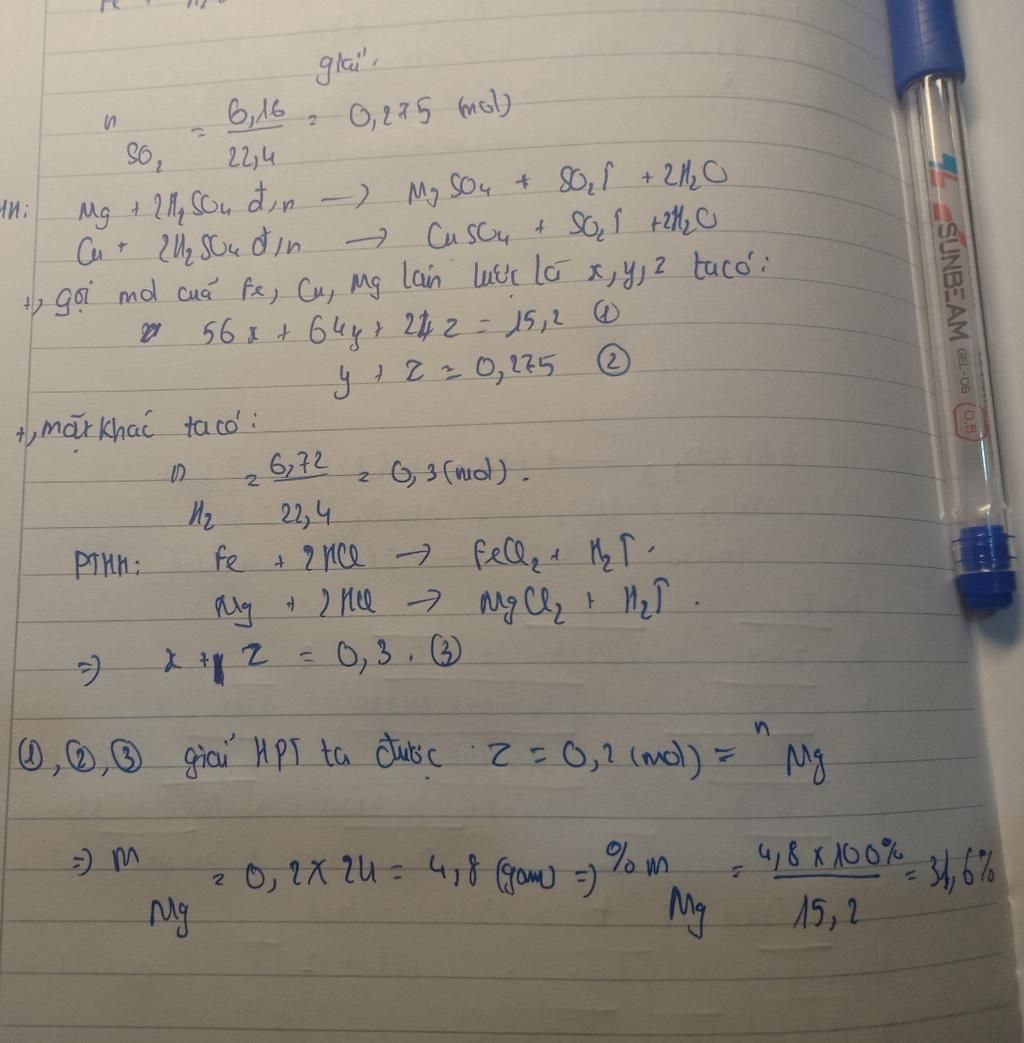 giải.
n SO₂ = 6,16 / 22,4 = 0,275 (mol)
HH: Mg + 2H₂SO₄ đ,n → MgSO₄ + SO₂↑ + 2H₂O
Cu + 2H₂SO₄ đ,n → CuSO₄ + SO₂↑ + 2H₂O
+, gọi mol cuả Fe, Cu, Mg lần lược là x, y, z ta có:
56x + 64y + 24z = 15,2 ①
y + z = 0,275 ②
+, mặt khác ta có:
n H₂ = 6,72 / 22,4 = 0,3 (mol).
PTHH: Fe + 2HCl → FeCl₂ + H₂↑.
Mg + 2HCl → MgCl₂ + H₂↑.
=) x + z = 0,3. ③
①, ②, ③ giải HPT ta được z = 0,2 (mol) = n Mg
=) m Mg = 0,2 x 24 = 4,8 (gam) =) % m Mg = 4,8 x 100% / 15,2 = 31,6%
SUNBEAM
GEL-08
0.5